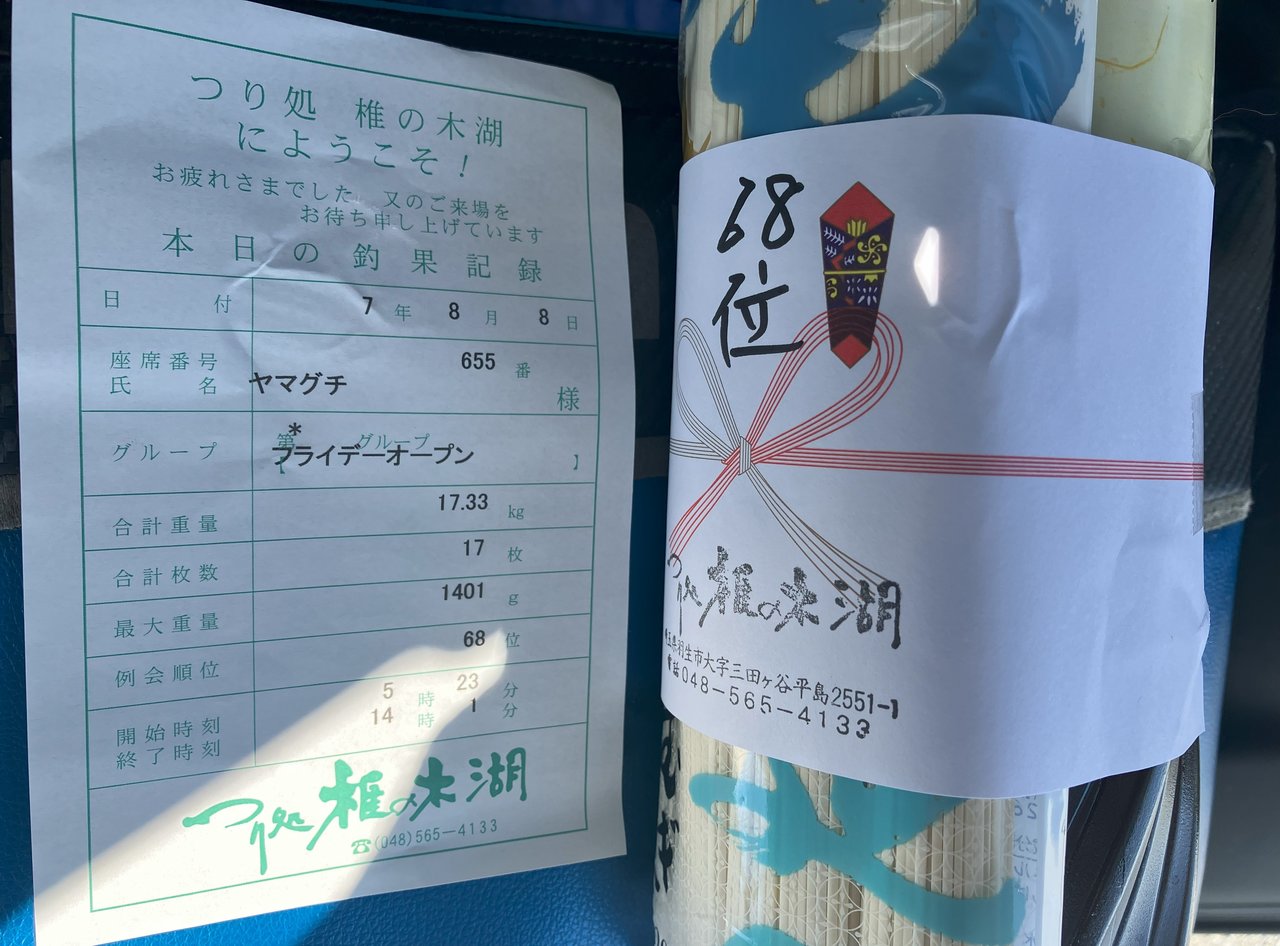 つり処 椎の木湖
にようこそ！
お疲れさまでした 又のご来場を
お待ち申し上げています
本日の釣果記録
日付 7年 8月 8日
座席番号 655番
氏名 ヤマグチ 様
グループ 第 * グループ
フライデーオープン 】
合計重量 17.33 kg
合計枚数 17 枚
最大重量 1401 g
例会順位 68 位
開始時刻 5時 23分
終了時刻 14時 1分
つり処 椎の木湖
☎(048)565-4133
68
位
つり処 椎の木湖
玉県羽生市大字三田ヶ谷平島2551-1
電話048-565-4133